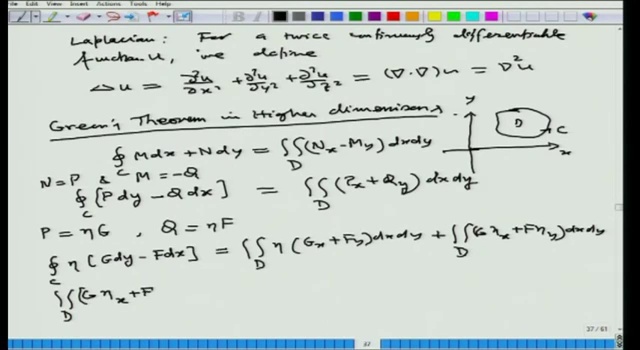 Edit View Insert Actions Tools Help
Laplacian: For a twice continuously differentiable
function u, we define
Δu = ∂²u/∂x² + ∂²u/∂y² + ∂²u/∂z² = (∇·∇)u = ∇²u
Green's Theorem in Higher dimensions
∮_C Mdx + Ndy = ∬_D (N_x - M_y) dxdy
y
D
C
x
N = P & M = -Q
∮_C [Pdy - Qdx] = ∬_D (P_x + Q_y) dxdy
P = ηG , Q = ηF
∮_C η [Gdy - Fdx] = ∬_D η (G_x + F_y) dxdy + ∬_D (Gη_x + Fη_y) dxdy
∬_D [Gη_x + F
37 / 61
37